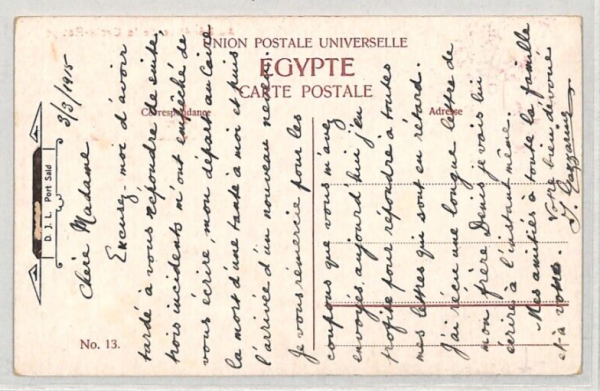 UNION POSTALE UNIVERSELLE
EGYPTE
CARTE POSTALE
Correspondance
Adresse
D. J. L. Port Said
No. 13.
3/3/1915
Chère Madame
Excusez-moi d'avoir
tardé à vous répondre de suite.
trois incidents m'ont empêché de
vous écrire, mon départ au Caire
la mort d'une tante à moi et puis
l'arrivée d'un nouveau neveu.
Je vous remercie pour les
coupons que vous m'avez
envoyés, aujourd'hui j'en
profite pour répondre à toutes
mes lettres qui sont en retard.
J'ai reçu une longue lettre de
mon frère Denis je vais lui
écrire à l'instant même.
Mes amitiés à toute la famille
et à votre.
Votre bien dévoué